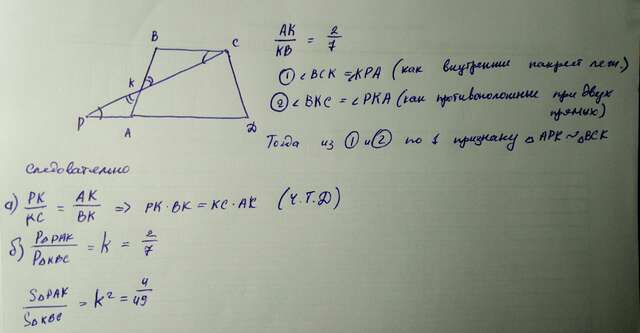 B
C
K
P
A
D
AK/KB = 2/7
① ∠BCK = KPA (как внутренние накрест леж.)
② ∠BKC = ∠PKA (как противоположные при двух
прямых)
Тогда из ① и ② по 1 признаку △APK ~ △BCK
Следовательно
а) PK/KC = AK/BK => PK·BK = KC·AK (Ч.Т.Д)
б) P△PAK/P△KBC = k = 2/7
S△PAK/S△KBC = k² = 4/49